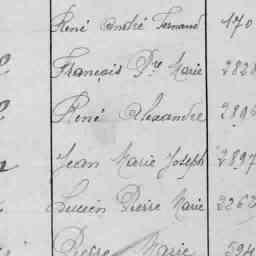 René André Fernand 170
François Pre Marie 2828
René Alexandre 289
Jean Marie Joseph 2897
Lucien Pierre Marie 2263
Pierre Marie 594